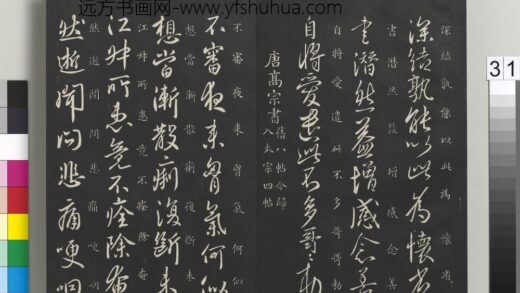 远方书画网-www.yfshuhua.com
31
深結孰能以此為懷省
深結孰能以此為懷省
書潸然益增感念善
書潸然益增感念善
自將愛遣此不多哥哥勑
自將愛遣此不多哥哥勑
唐高宗書
舊八帖今歸
入太宗四帖
不審夜來胷氣何似
不審夜來胷氣何似
想當漸散痢復斷未
想當漸散痢復斷未
江舛所患竟不痊除奄
江舛所患竟不痊除奄
然逝聞問悲痛哽咽
然逝聞問悲痛哽咽